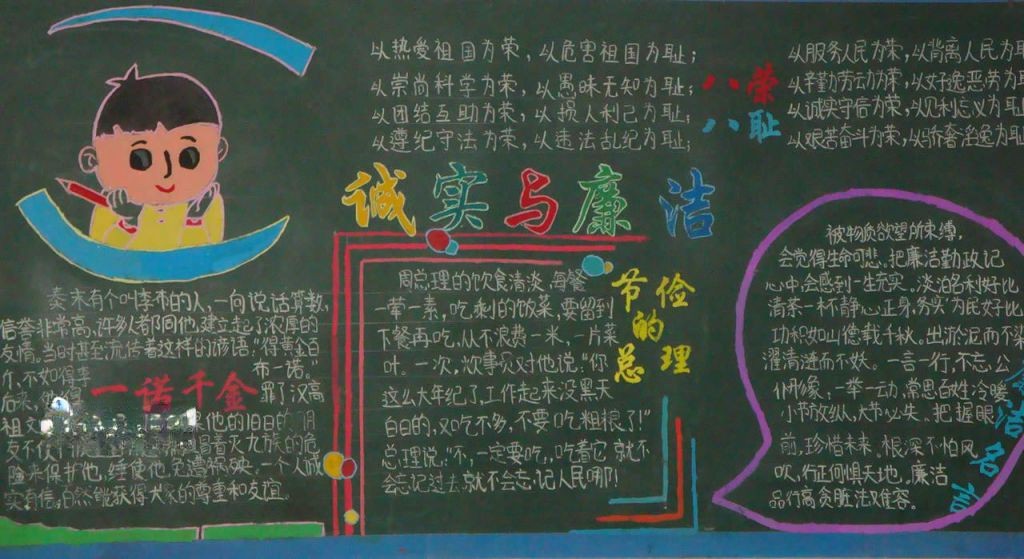 以热爱祖国为荣，以危害祖国为耻；
以崇尚科学为荣，以愚昧无知为耻；
以团结互助为荣，以损人利己为耻；
以遵纪守法为荣，以违法乱纪为耻；
八荣
八耻
以服务人民为荣，以背离人民为耻
以辛勤劳动为荣，以好逸恶劳为耻
以诚实守信为荣，以见利忘义为耻
以艰苦奋斗为荣，以骄奢淫逸为耻
诚实与廉洁
秦末有个叫季布的人，一向说话算数，
信誉非常高，许多人都同他建立起了浓厚的
友情。当时甚至流传着这样的谚语：“得黄金百
斤，不如得季布一诺。”
一诺千金
后来，罪了汉高
祖他的旧日的朋
友不仅冒着灭九族的危
险来保护他，终使他免遭祸殃。一个人诚
实有信，自然能获得大家的尊重和友谊。
周总理的饮食清淡，每餐
一荤一素，吃剩的饭菜，要留到
下餐再吃，从不浪费一米，一片菜
叶。一次，炊事员对他说：“你
这么大年纪了，工作起来没黑天
白日的，又吃不多，不要吃粗粮了！”
总理说：“不，一定要吃，吃着它就不
会忘记过去，就不会忘记人民哪！
节俭
的
总理
被物质欲望所束缚，
会觉得生命可悲。把廉洁勤政记
心中，会感到一生充实。淡泊名利好比
清茶一杯静心正身，务实为民好比
功积如山德载千秋。出淤泥而不染
濯清涟而不妖。一言一行，不忘公
仆形象，一举一动，常思百姓冷暖
小节放纵，大节必失。把握眼
前，珍惜未来。根深不怕风
吹，行正何惧天地。廉洁
品行高，贪赃法难容。
洁名言